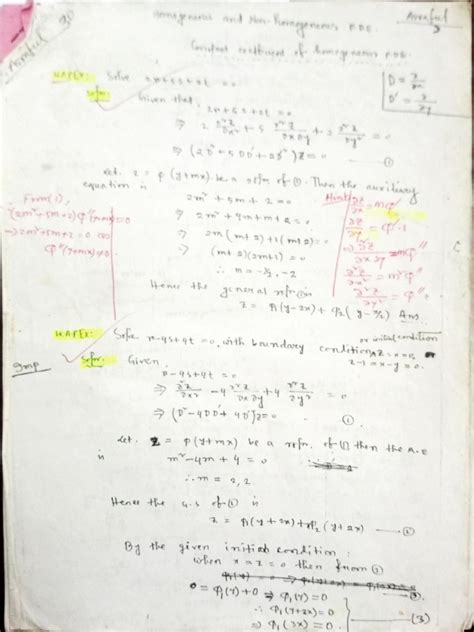 Homogeneous and Non-homogeneous P.D.E.
Constant coefficient of homogeneous P.D.E.
Arraful
D = ∂/∂x
D' = ∂/∂y
Solve 2r+5s+2t = 0
Soln: Given that,
2r+5s+2t = 0
⇒ 2 ∂²z/∂x² + 5 ∂²z/∂x∂y + 2 ∂²z/∂y² = 0
⇒ (2D²+5DD'+2D'²)z = 0 — ①
Let. z = φ(y+mx) be a soln of ①. Then the auxiliary
equation is
2m²+5m+2 = 0
⇒ 2m²+4m+m+2 = 0
⇒ 2m(m+2)+1(m+2) = 0
⇒ (m+2)(2m+1) = 0
∴ m = -½, -2
Hence the general soln is
z = φ₁(y-2x)+φ₂(y-x/2) Ans.
From (1),
(2m²+5m+2)φ''(y+mx)=0
⇒ 2m²+5m+2 = 0 as
φ''(y+mx)≠0
∂z/∂x = mφ'
∂z/∂y = φ'.1
⇒ ∂²z/∂x∂y = mφ''
∂²z/∂x² = m²φ''
∂²z/∂y² = φ''
Solve r-4s+4t = 0, with boundary condition
or initial condition
z = x = 0,
z-1 = x-y = 0.
Imp
Soln: Given
r-4s+4t = 0
⇒ ∂²z/∂x² - 4 ∂²z/∂x∂y + 4 ∂²z/∂y² = 0
⇒ (D²-4DD'+4D'²)z = 0 — ①
Let. z = φ(y+mx) be a soln. of ① then the A.E
is m²-4m+4 = 0
∴ m = 2, 2
Hence the G.S of ① is
z = φ₁(y+2x)+xφ₂(y+2x) — ②
By the given initial condition:
when x = z = 0 then from
0 = φ₁(y)+0 ⇒ φ₁(y) = 0
∴ φ₁(y+2x) = 0
∴ φ₁(3x) = 0 — (3)